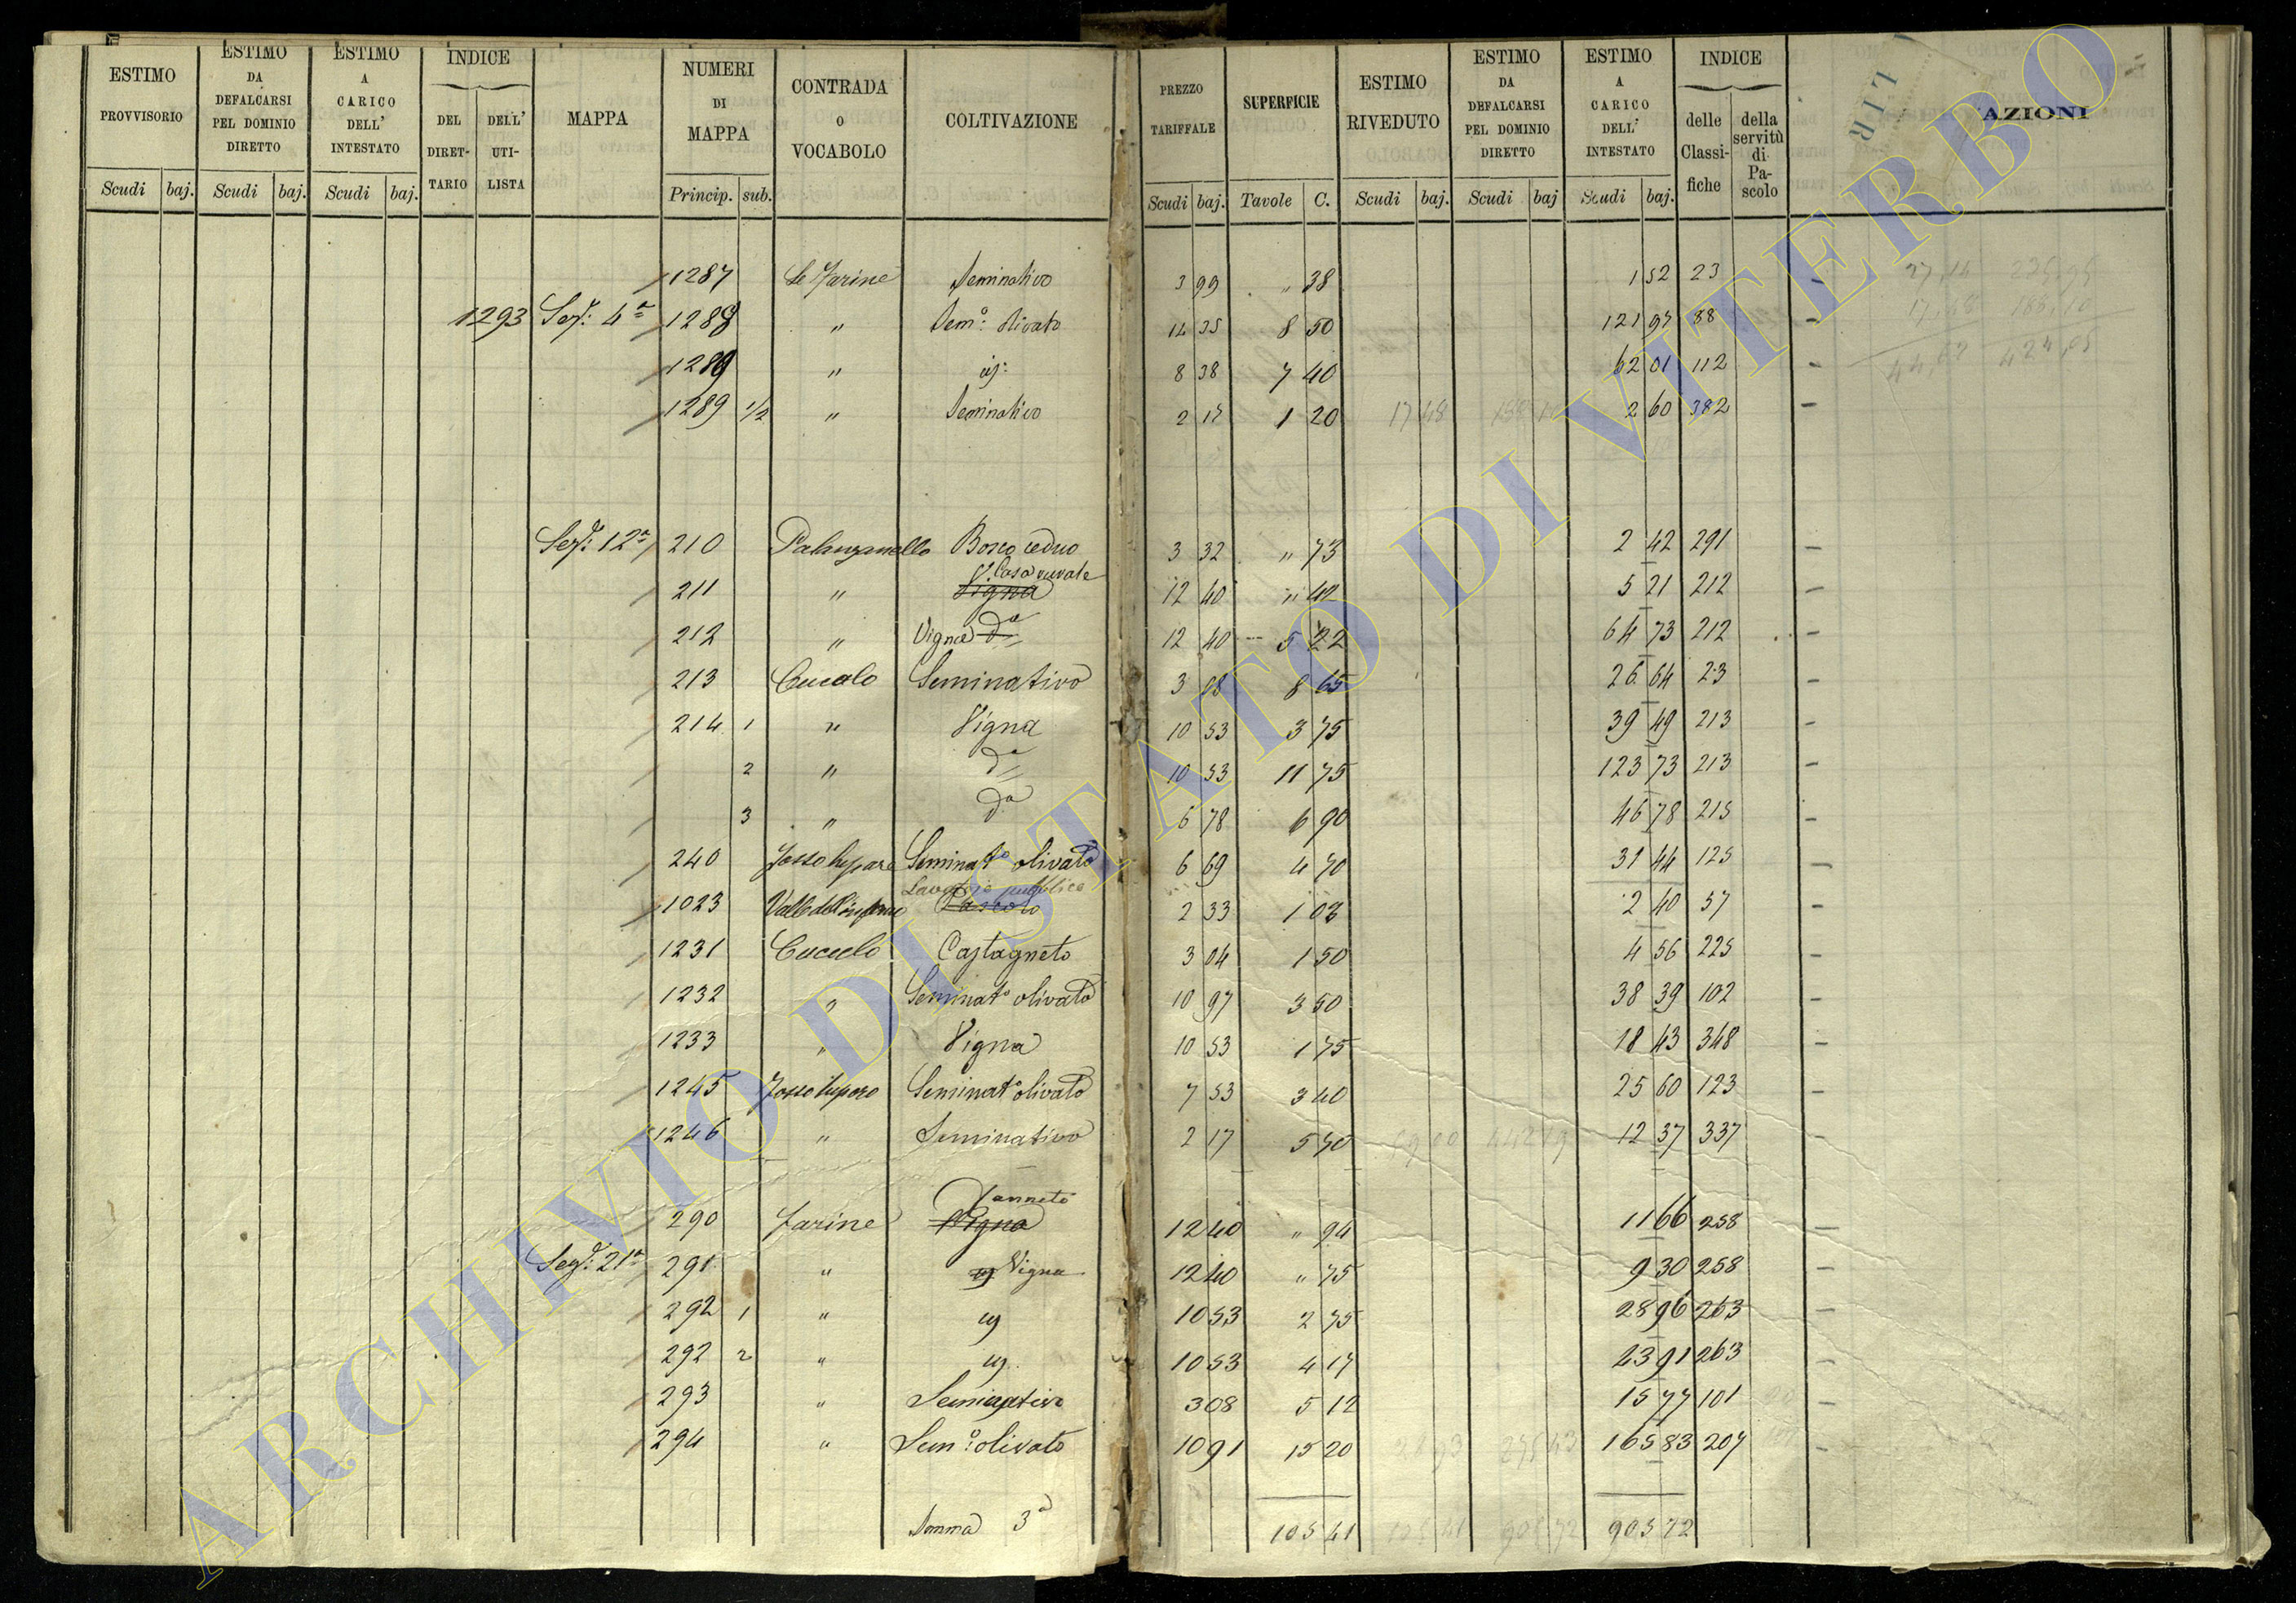 ESTIMO PROVVISORIO Scudi baj. ESTIMO DA DEFALCARSI PEL DOMINIO DIRETTO Scudi baj. ESTIMO A CARICO DELL' INTESTATO Scudi baj. INDICE DEL DIRET-TARIO DELL' UTI-LISTA MAPPA NUMERI DI MAPPA Princip. sub. CONTRADA O VOCABOLO COLTIVAZIONE PREZZO TARIFFALE Scudi baj. SUPERFICIE Tavole C. ESTIMO RIVEDUTO Scudi baj. ESTIMO DA DEFALCARSI PEL DOMINIO DIRETTO Scudi baj ESTIMO A CARICO DELL' INTESTATO Scudi baj. INDICE delle Classi-fiche della servitù di Pa-scolo AZIONI
LIR
1287 Le Farine Seminativo 3 99 " 38 1 52 23 -
1293 Sez: 4a 1288 " Semo: olivato 14 35 8 50 121 97 88 -
1289 " 8 38 7 40 62 01 112 -
1289 1/2 " Seminativo 2 17 1 20 2 60 382 -
Sez: 12a 210 Bosco ceduo 3 32 " 73 2 42 291 -
211 " Vigna 12 40 " 42 5 21 212 -
212 " Vigna da 12 40 5 22 64 73 212 -
213 Cucalo Seminativo 3 08 8 65 26 64 23 -
214 1 " Vigna 10 53 3 75 39 49 213 -
2 " da 10 53 11 75 123 73 213 -
3 " da 6 78 6 90 46 78 215 -
240 Seminato olivato 6 69 4 70 31 44 125 -
1023 Pascolo 2 33 1 03 2 40 57 -
1231 Cuculo Castagneto 3 04 1 50 4 56 225 -
1232 " Seminato olivato 10 97 3 50 38 39 102 -
1233 " Vigna 10 53 1 75 18 43 348 -
1245 Seminato olivato 7 53 3 40 25 60 123 -
1246 " Seminativo 2 17 5 70 12 37 337 -
290 Farine Vigna Canneto 12 40 " 94 11 66 258 -
Sez: 21a 291 " Vigna 12 40 " 75 9 30 258 -
292 1 " 10 53 2 75 28 96 263 -
292 2 " 10 53 4 17 43 91 263 -
293 " Seminativo 3 08 5 12 15 77 101 -
294 " Semo: olivato 10 91 15 20 165 83 207 -
Somma 3a 105 41 905 72
ARCHIVIO DI STATO DI VITERBO